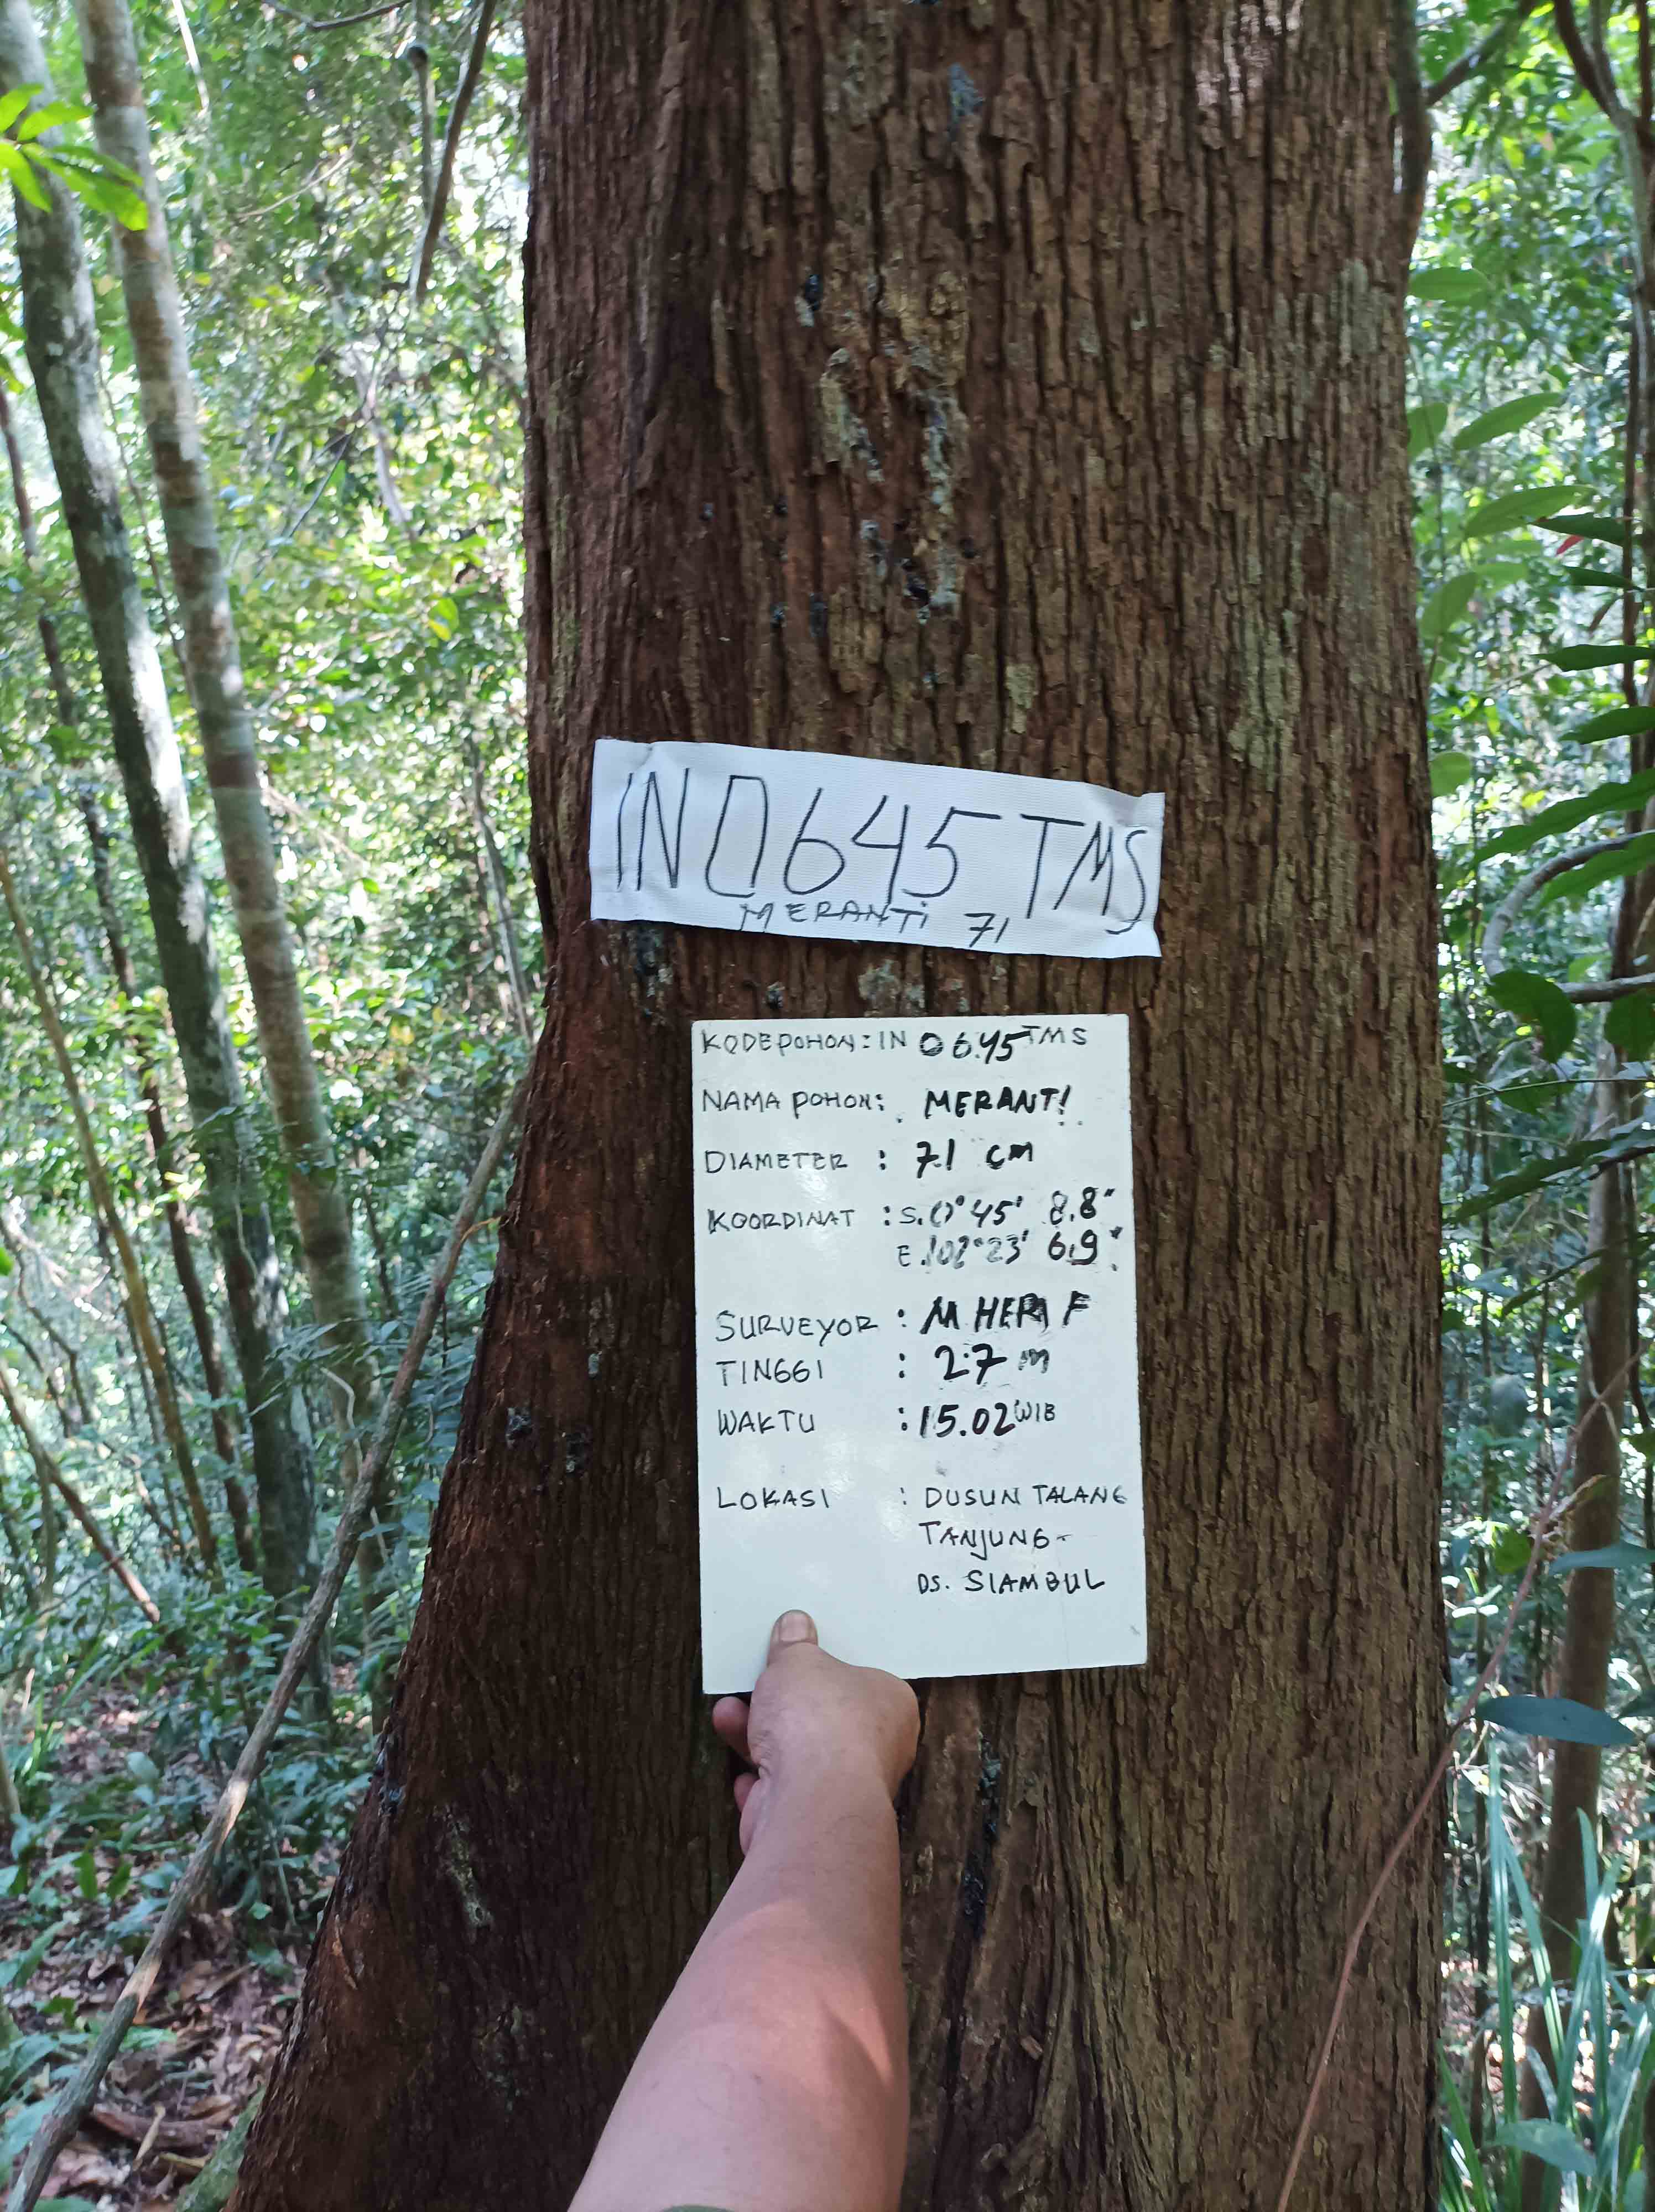 IN 0645 TMS
MERANTi 71
KODE POHON : IN 0645 TMS
NAMA POHON : MERANTI
DIAMETER : 71 CM
KOORDINAT : S. 0° 45' 8.8"
E. 102° 23' 6.9"
SURVEYOR : M HERI F
TINGGI : 27 m
WAKTU : 15.02 WIB
LOKASI : DUSUN TALANG
TANJUNG -
DS. SIAMBUL